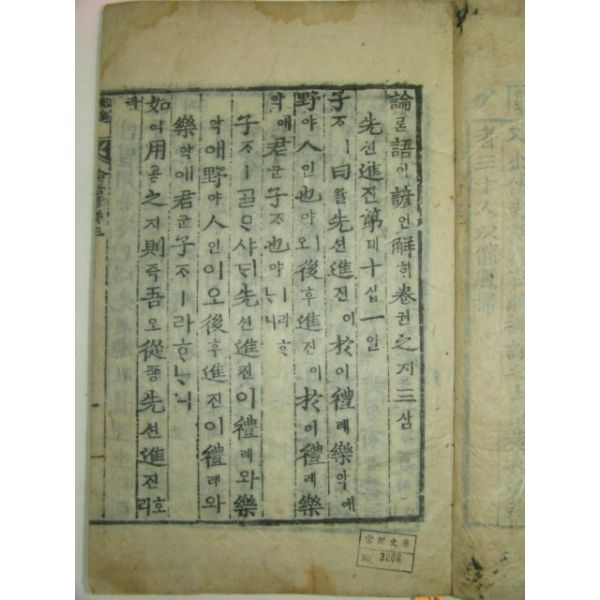 論론語어諺언解해卷권之지三삼
先션進진第뎨十십一일
子ᄌᆞㅣ曰왈先션進진이於어禮례樂악애
野야人인也야ㅣ오後후進진이於어禮례樂
악애君군子ᄌᆞ也야ㅣ라ᄒᆞᄂᆞ니
子ᄌᆞㅣᄀᆞᆯᄋᆞ샤ᄃᆡ先션進진이禮례와樂
악애野야人인이오後후進진이禮례와
樂악애君군子ᄌᆞㅣ라ᄒᆞᄂᆞ니
如여用용之지則즉吾오從죵先션進진호리
라
No. 3208